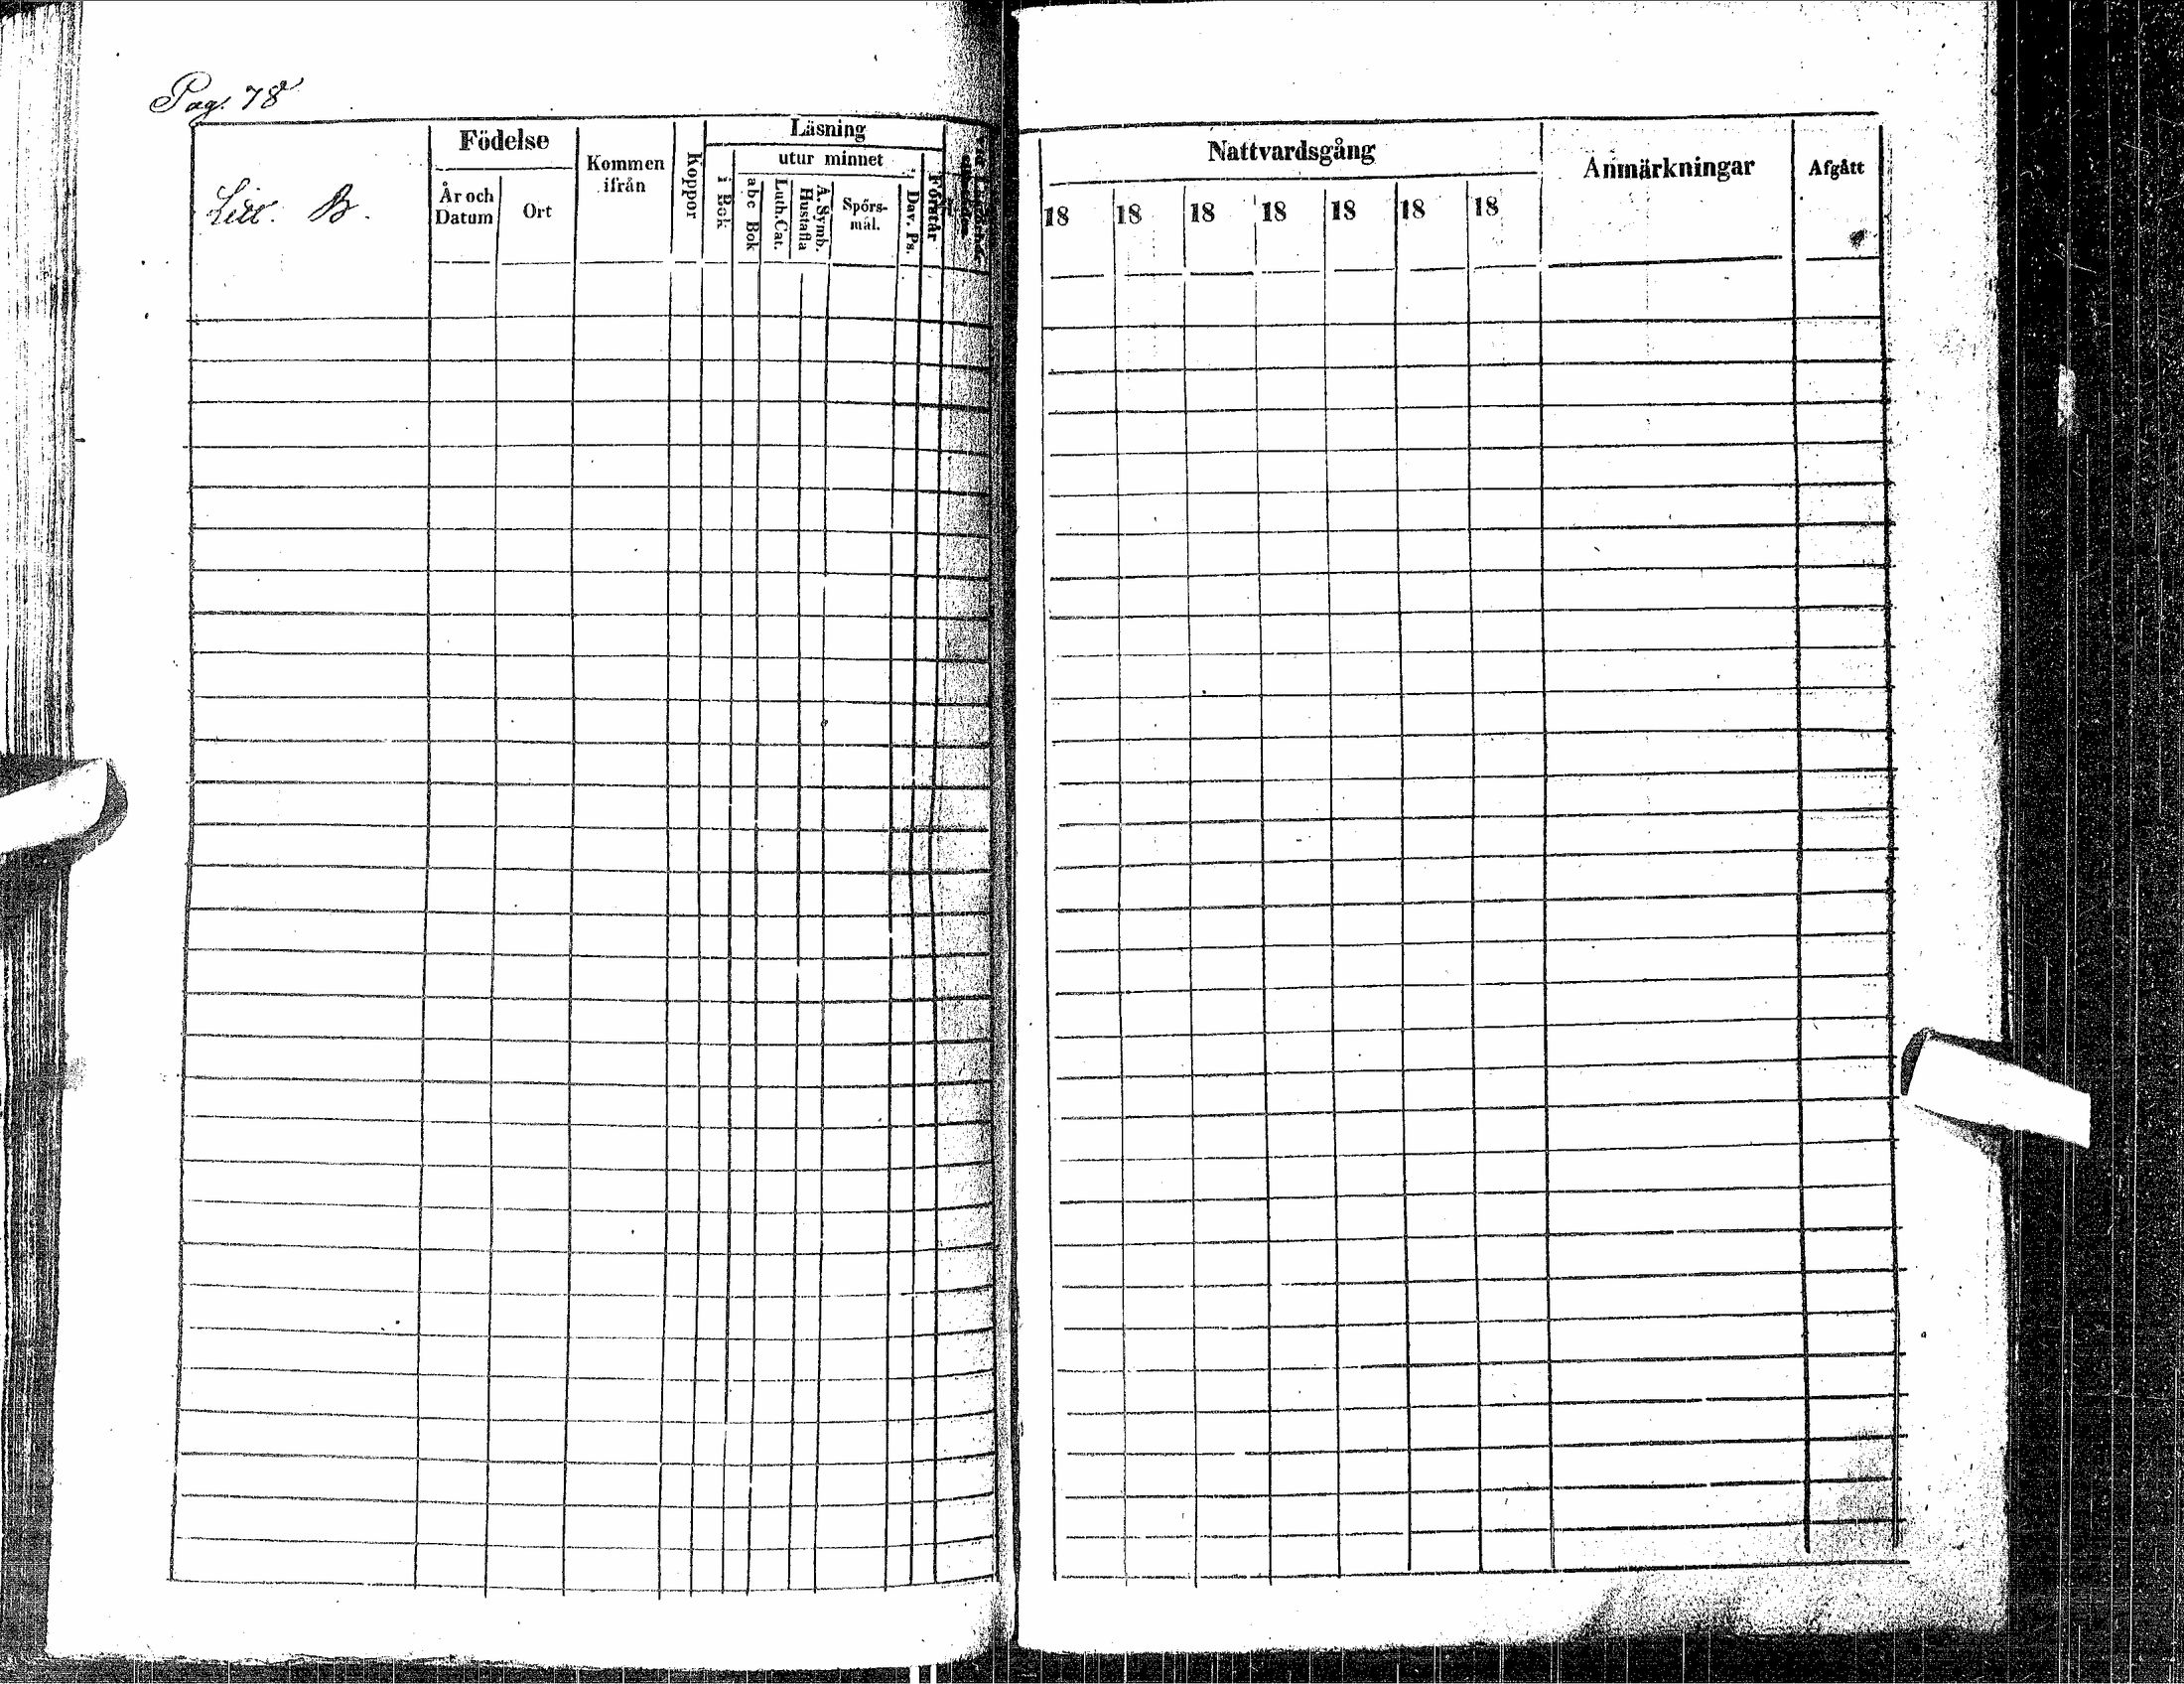 Pag. 78
Litt. B.
Födelse
År och Datum
Ort
Kommen ifrån
Koppor
Läsning
i Bok
utur minnet
abc Bok
Luth. Cat.
A. Symb. Hustafla
Spörs-
mål.
Dav. Ps.
Förstår
Nattvardsgång
18 18 18 18 18 18 18
Anmärkningar
Afgått